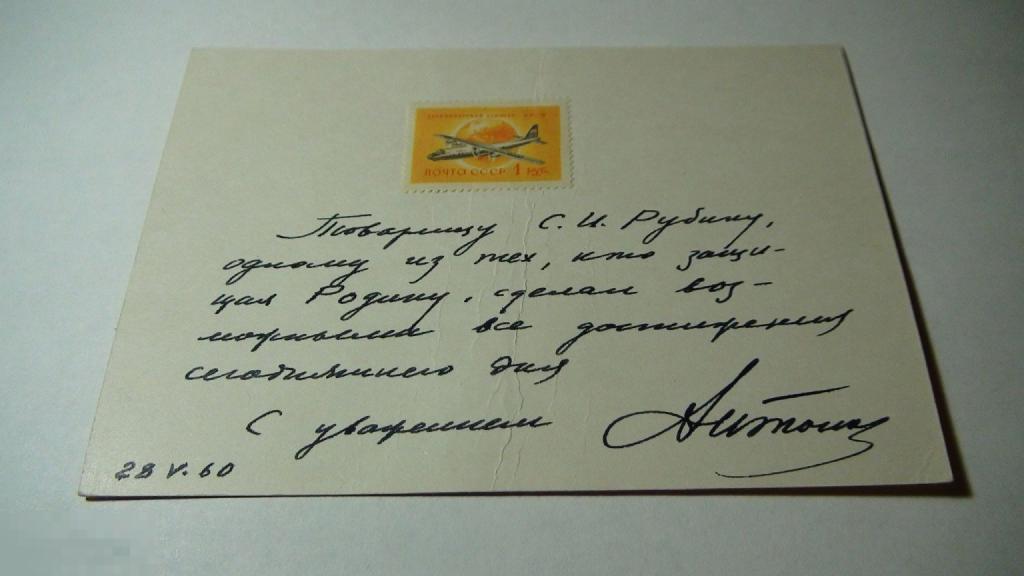 ПОЧТА СССР 1 РУБ.
Товарищу С. И. Рубину,
одному из тех, кто защи-
щая Родину, сделал воз-
можными все достижения
сегодняшнего дня
С уважением Антонов
28 V. 60